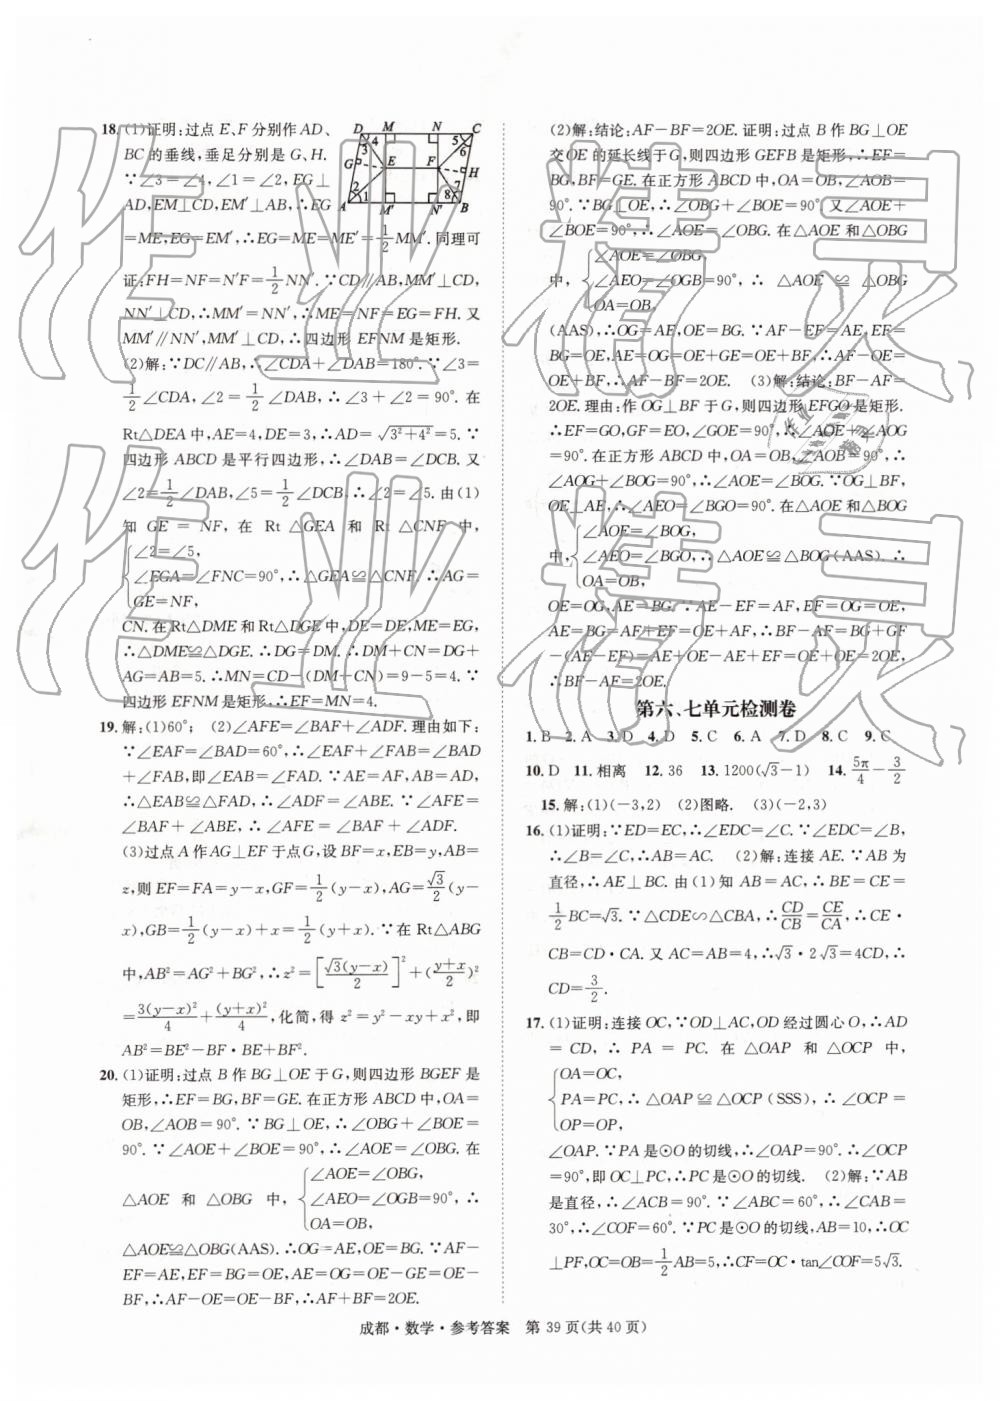 18. (1)证明:过点 E、F 分别作 AD、
BC 的垂线,垂足分别是 G、H.
∵∠3=∠4,∠1=∠2,EG⊥
AD,EM⊥CD,EM′⊥AB,∴EG
=ME,EG=EM′,∴EG=ME=ME′=1/2MM′.同理可
证:FH=NF=N′F=1/2NN′.∵CD∥AB,MM′⊥CD,
NN′⊥CD,∴MM′=NN′,∴ME=NF=EG=FH.又
MM′∥NN′,MM′⊥CD,∴四边形 EFNM 是矩形.
(2)解:∵DC∥AB,∴∠CDA+∠DAB=180°.∵∠3=
1/2∠CDA,∠2=1/2∠DAB,∴∠3+∠2=90°.在
Rt△DEA 中,AE=4,DE=3,∴AD=√(3²+4²)=5.∵
四边形 ABCD 是平行四边形,∴∠DAB=∠DCB.又
∠2=1/2∠DAB,∠5=1/2∠DCB,∴∠2=∠5.由(1)
知 GE=NF,在 Rt△GEA 和 Rt△CNF 中,
∠2=∠5,
∠EGA=∠FNC=90°,∴△GEA≌△CNF,∴AG=
GE=NF,
CN.在 Rt△DME 和 Rt△DGE 中,DE=DE,ME=EG,
∴△DME≌△DGE.∴DG=DM.∴DM+CN=DG+
AG=AB=5.∴MN=CD-(DM+CN)=9-5=4.∵
四边形 EFNM 是矩形,∴EF=MN=4.
19. 解:(1)60°; (2)∠AFE=∠BAF+∠ADF.理由如下:
∵∠EAF=∠BAD=60°,∴∠EAF+∠BAF=∠BAD
+∠BAF,即∠EAB=∠FAD.∵AE=AF,AB=AD,
∴△EAB≌△FAD,∴∠ADF=∠ABE.∵∠AFE=
∠BAF+∠ABE,∴∠AFE=∠BAF+∠ADF.
(3)过点 A 作 AG⊥EF 于点 G,设 BF=x,EB=y,AB=
z,则 EF=FA=y-x,GF=1/2(y-x),AG=√3/2(y-
x),GB=1/2(y-x)+x=1/2(y+x).∵在 Rt△ABG
中,AB²=AG²+BG²,∴z²=[√3(y-x)/2]²+((y+x)/2)²
=3(y-x)²/4+(y+x)²/4,化简,得 z²=y²-xy+x²,即
AB²=BE²-BF·BE+BF².
20. (1)证明:过点 B 作 BG⊥OE 于 G,则四边形 BGEF 是
矩形,∴EF=BG,BF=GE.在正方形 ABCD 中,OA=
OB,∠AOB=90°.∵BG⊥OE,∴∠OBG+∠BOE=
90°.∵∠AOE+∠BOE=90°,∴∠AOE=∠OBG.在
∠AOE=∠OBG,
△AOE 和 △OBG 中, ∠AEO=∠OGB=90°, ∴
OA=OB,
△AOE≌△OBG(AAS).∴OG=AE,OE=BG.∵AF-
EF=AE,EF=BG=OE,AE=OG=OE-GE=OE-
BF,∴AF-OE=OE-BF,∴AF+BF=2OE.
D M N C
3 4 5 6
G E F H
2 1 7 8
A M′ N′ B
(2)解:结论:AF-BF=2OE.证明:过点 B 作 BG⊥OE
交 OE 的延长线于 G,则四边形 GEFB 是矩形,∴EF=
BG,BF=GE.在正方形 ABCD 中,OA=OB,∠AOB=
90°.∵BG⊥OE,∴∠OBG+∠BOE=90°.又∠AOE+
∠BOE=90°,∴∠AOE=∠OBG.在△AOE 和△OBG
∠AOE=∠OBG,
中, ∠AEO=∠OGB=90°, ∴ △AOE ≌ △OBG
OA=OB,
(AAS),∴OG=AE,OE=BG.∵AF-EF=AE,EF=
BG=OE,AE=OG=OE+GE=OE+BF,∴AF-OE=
OE+BF,∴AF-BF=2OE. (3)解:结论:BF-AF=
2OE.理由:作 OG⊥BF 于 G,则四边形 EFGO 是矩形.
∴EF=GO,GF=EO,∠GOE=90°,∴∠AOE+∠AOG
=90°.在正方形 ABCD 中,OA=OB,∠AOB=90°,∴
∠AOG+∠BOG=90°,∴∠AOE=∠BOG.∵OG⊥BF,
OE⊥AE,∴∠AEO=∠BGO=90°.在△AOE 和△BOG
∠AOE=∠BOG,
中, ∠AEO=∠BGO,∴△AOE≌△BOG(AAS),∴
OA=OB,
OE=OG,AE=BG.∵AE-EF=AF,EF=OG=OE,
AE=BG=AF+EF=OE+AF,∴BF-AF=BG+GF
-(AE-EF)=AE+OE-AE+EF=OE+OE=2OE,
∴BF-AF=2OE.
第六、七单元检测卷
1. B 2. A 3. D 4. D 5. C 6. A 7. D 8. C 9. C
10. D 11. 相离 12. 36 13. 1200(√3-1) 14. 5π/4-3/2
15. 解:(1)(-3,2) (2)图略. (3)(-2,3)
16. (1)证明:∵ED=EC,∴∠EDC=∠C.∵∠EDC=∠B,
∴∠B=∠C,∴AB=AC. (2)解:连接 AE.∵AB 为
直径,∴AE⊥BC.由(1)知 AB=AC,∴BE=CE=
1/2BC=√3.∵△CDE∽△CBA,∴CD/CB=CE/CA,∴CE·
CB=CD·CA.又 AC=AB=4,∴√3·2√3=4CD,∴
CD=3/2.
17. (1)证明:连接 OC,∵OD⊥AC,OD 经过圆心 O,∴AD
=CD,∴PA=PC.在△OAP 和△OCP 中,
OA=OC,
PA=PC,∴△OAP≌△OCP(SSS),∴∠OCP=
OP=OP,
∠OAP.∵PA 是⊙O 的切线,∴∠OAP=90°.∴∠OCP
=90°,即 OC⊥PC,∴PC 是⊙O 的切线. (2)解:∵AB
是直径,∴∠ACB=90°.∵∠ABC=60°,∴∠CAB=
30°,∴∠COF=60°.∵PC 是⊙O 的切线,AB=10,∴OC
⊥PF,OC=OB=1/2AB=5,∴CF=OC·tan∠COF=5√3.
成都·数学·参考答案 第 39 页(共 40 页)
作业精灵
作业精灵